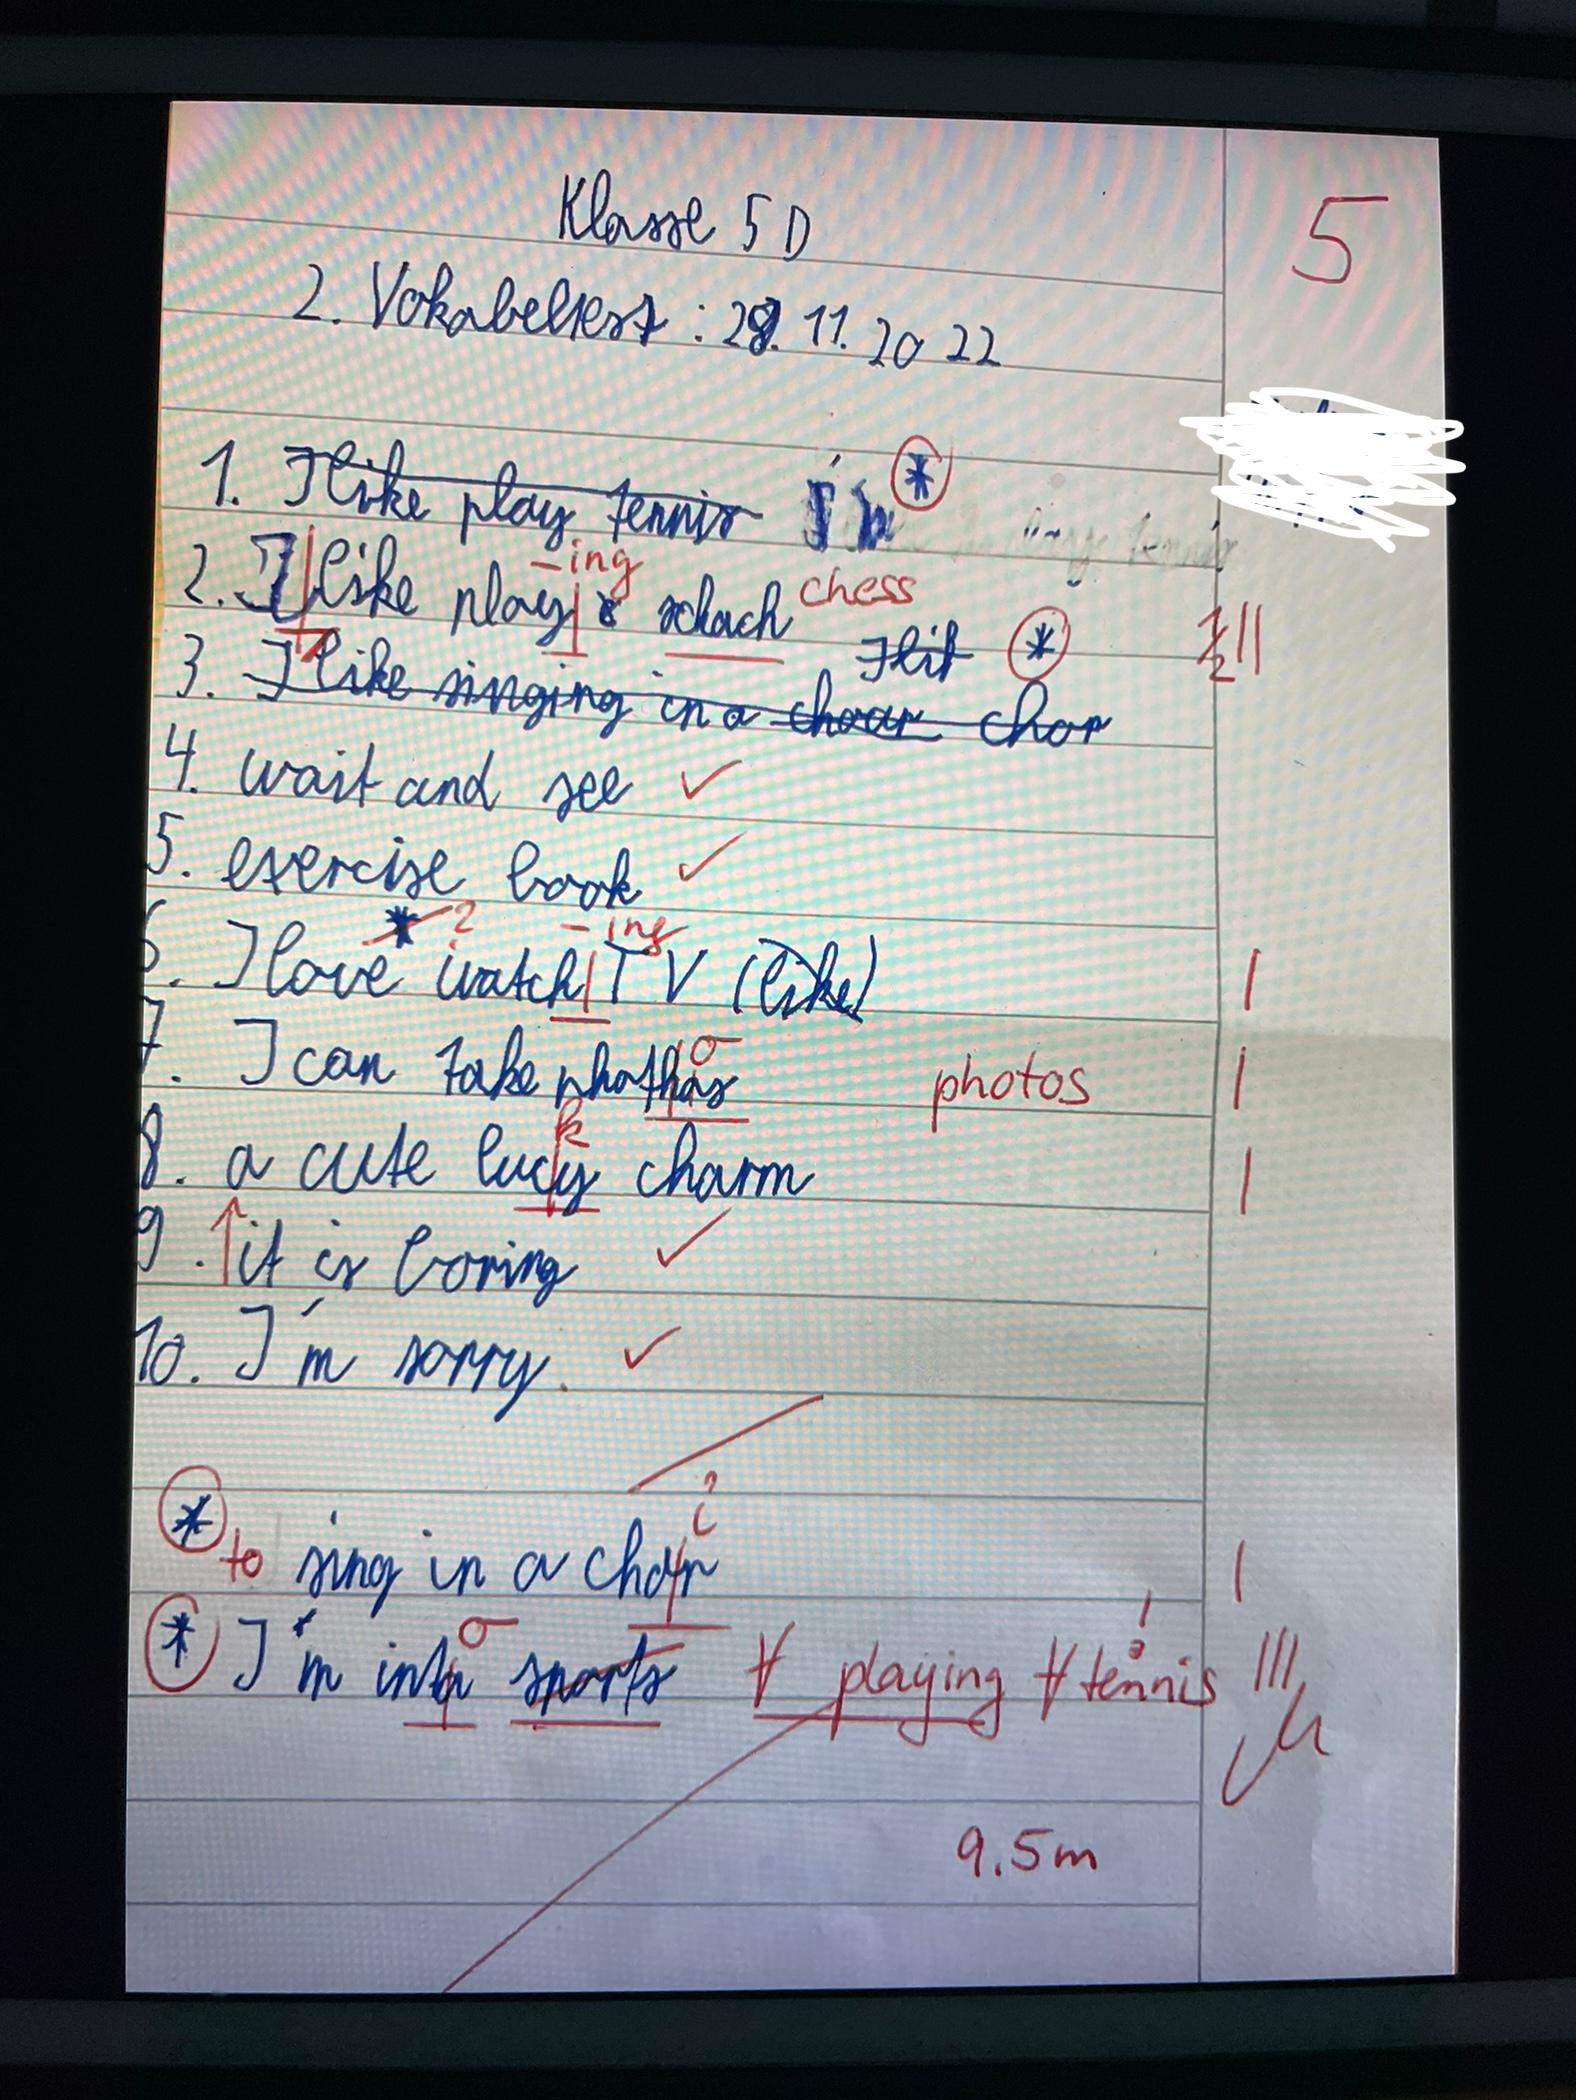 Klasse 5D
5
2. Vokabeltest: 28.11.2022
1. I like play tennis I'm *
-ing
2. I like play schach chess
½||
I lik *
3. I like singing in a choar chor
4. wait and see ✓
5. exercise book ✓
* ? -ing
6. I love watch TV (like)
|
o
7. I can take phothos photos |
k
8. a cute lucy charm |
9. it is boring ✓
10. I'm sorry. ✓
i
* to sing in a chor |
o
* I'm inta sports playing tennis |||
9.5m